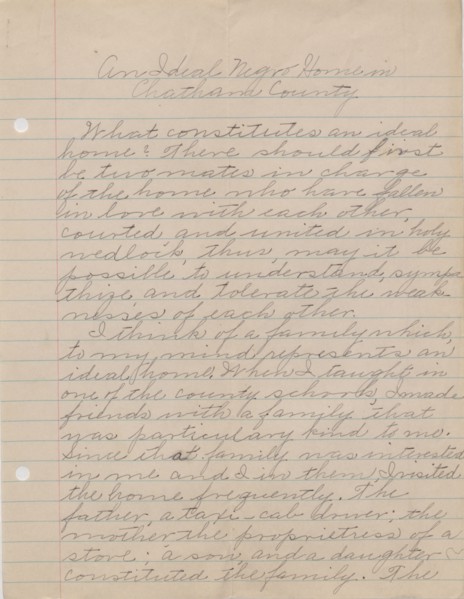 An Ideal Negro Home in
Chatham County
What constitutes an ideal
home? There should first
be two mates in charge
of the home who have fallen
in love with each other,
courted and united in holy
wedlock, thus, may it be
possible to understand, sympa
thize, and tolerate the weak-
nesses of each other.
I think of a family which,
to my mind represents an
ideal home. When I taught in
one of the county schools, I made
friends with a family that
was particulary kind to me.
Since that family was interested
in me and I in them, I visited
the home frequently. The
father, a taxi-cab driver; the
mother the proprietress of a
store; a son, and a daughter
constituted the family. The